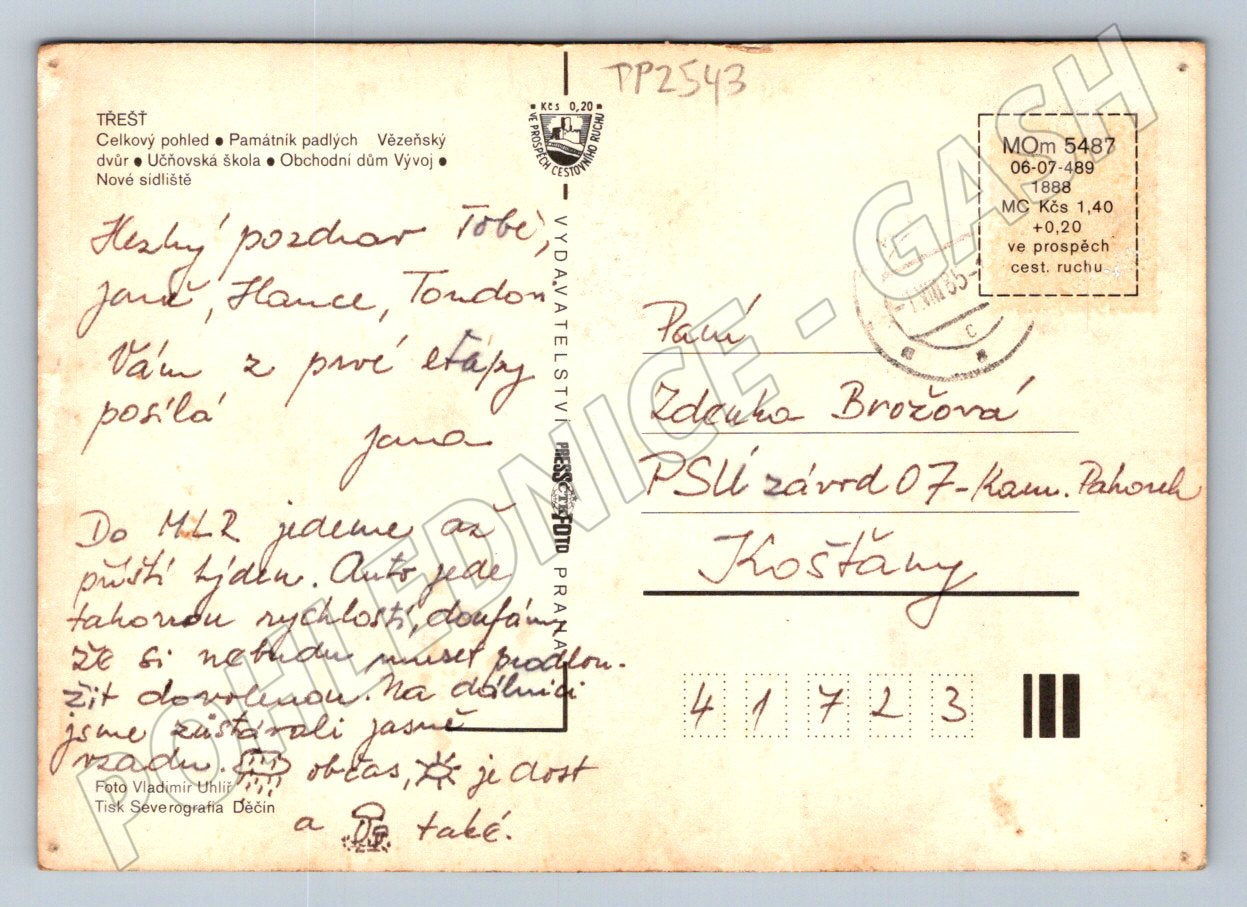 TŘEŠŤ
Celkový pohled ● Památník padlých Vězeňský
dvůr ● Učňovská škola ● Obchodní dům Vývoj ●
Nové sídliště
Hezký pozdrav Tobě,
Janě, Hance, Tondon
Vám z prvé etápy
posílá
Jana
Do MLR jedeme až
příští týden. Auto jede
tahovou rychlostí, doufám,
že si nebudu muset prodlou-
žit dovolenou. Na dálnici
jsme zůstávali jasně
vzadu. občas, je dost
a také.
Foto Vladimír Uhlíř
Tisk Severografia Děčín
Kčs 0,20
VE PROSPĚCH CESTOVNÍHO RUCHU
VYDAVATELSTVÍ PRESSFOTO PRAHA
ČTK
PP2543
MOm 5487
06-07-489
1888
MC Kčs 1,40
+0,20
ve prospěch
cest. ruchu
Paní
Zdenka Brožová
PSÚ závod 07-Kam. Pahorek
Košťany
41723
POHLEDNICE - GASH